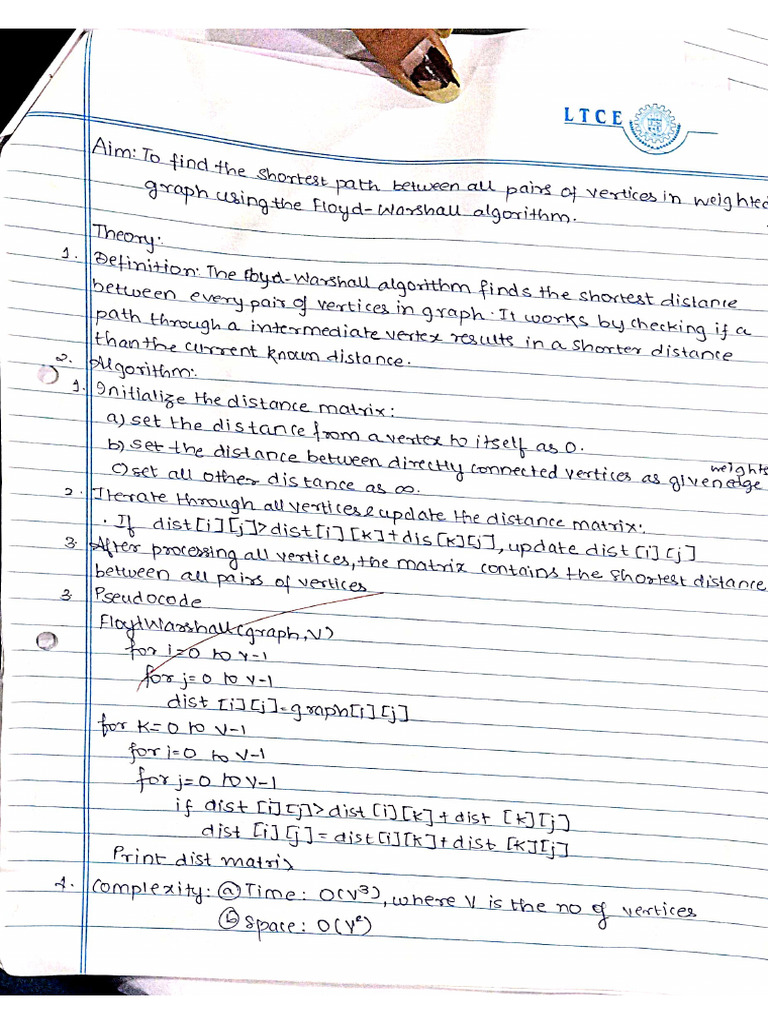 LTCE
Aim: To find the shortest path between all pairs of vertices in weighted
graph using the Floyd-Warshall algorithm.
Theory:
1. Definition: The Floyd-Warshall algorithm finds the shortest distance
between every pair of vertices in graph. It works by checking if a
path through a intermediate vertex results in a shorter distance
than the current known distance.
2. Algorithm:
1. Initialize the distance matrix:
a) set the distance from a vertex to itself as 0.
b) set the distance between directly connected vertices as given edge weights
c) set all other distance as ∞.
2. Iterate through all vertices & update the distance matrix:
· If dist[i][j]>dist[i][k]+dis[k][j], update dist[i][j]
3. After processing all vertices, the matrix contains the shortest distance
between all pairs of vertices
3 Pseudocode
FloydWarshall(graph, V)
for i=0 to v-1
for j=0 to v-1
dist [i][j]=graph[i][j]
for k=0 to v-1
for i=0 to v-1
for j=0 to v-1
if dist [i][j]>dist[i][k]+dist [k][j]
dist [i][j]=dist[i][k]+dist [k][j]
Print dist matrix
4. Complexity: ⓐ Time: O(V³), where V is the no of vertices
ⓑ Space: O(V²)